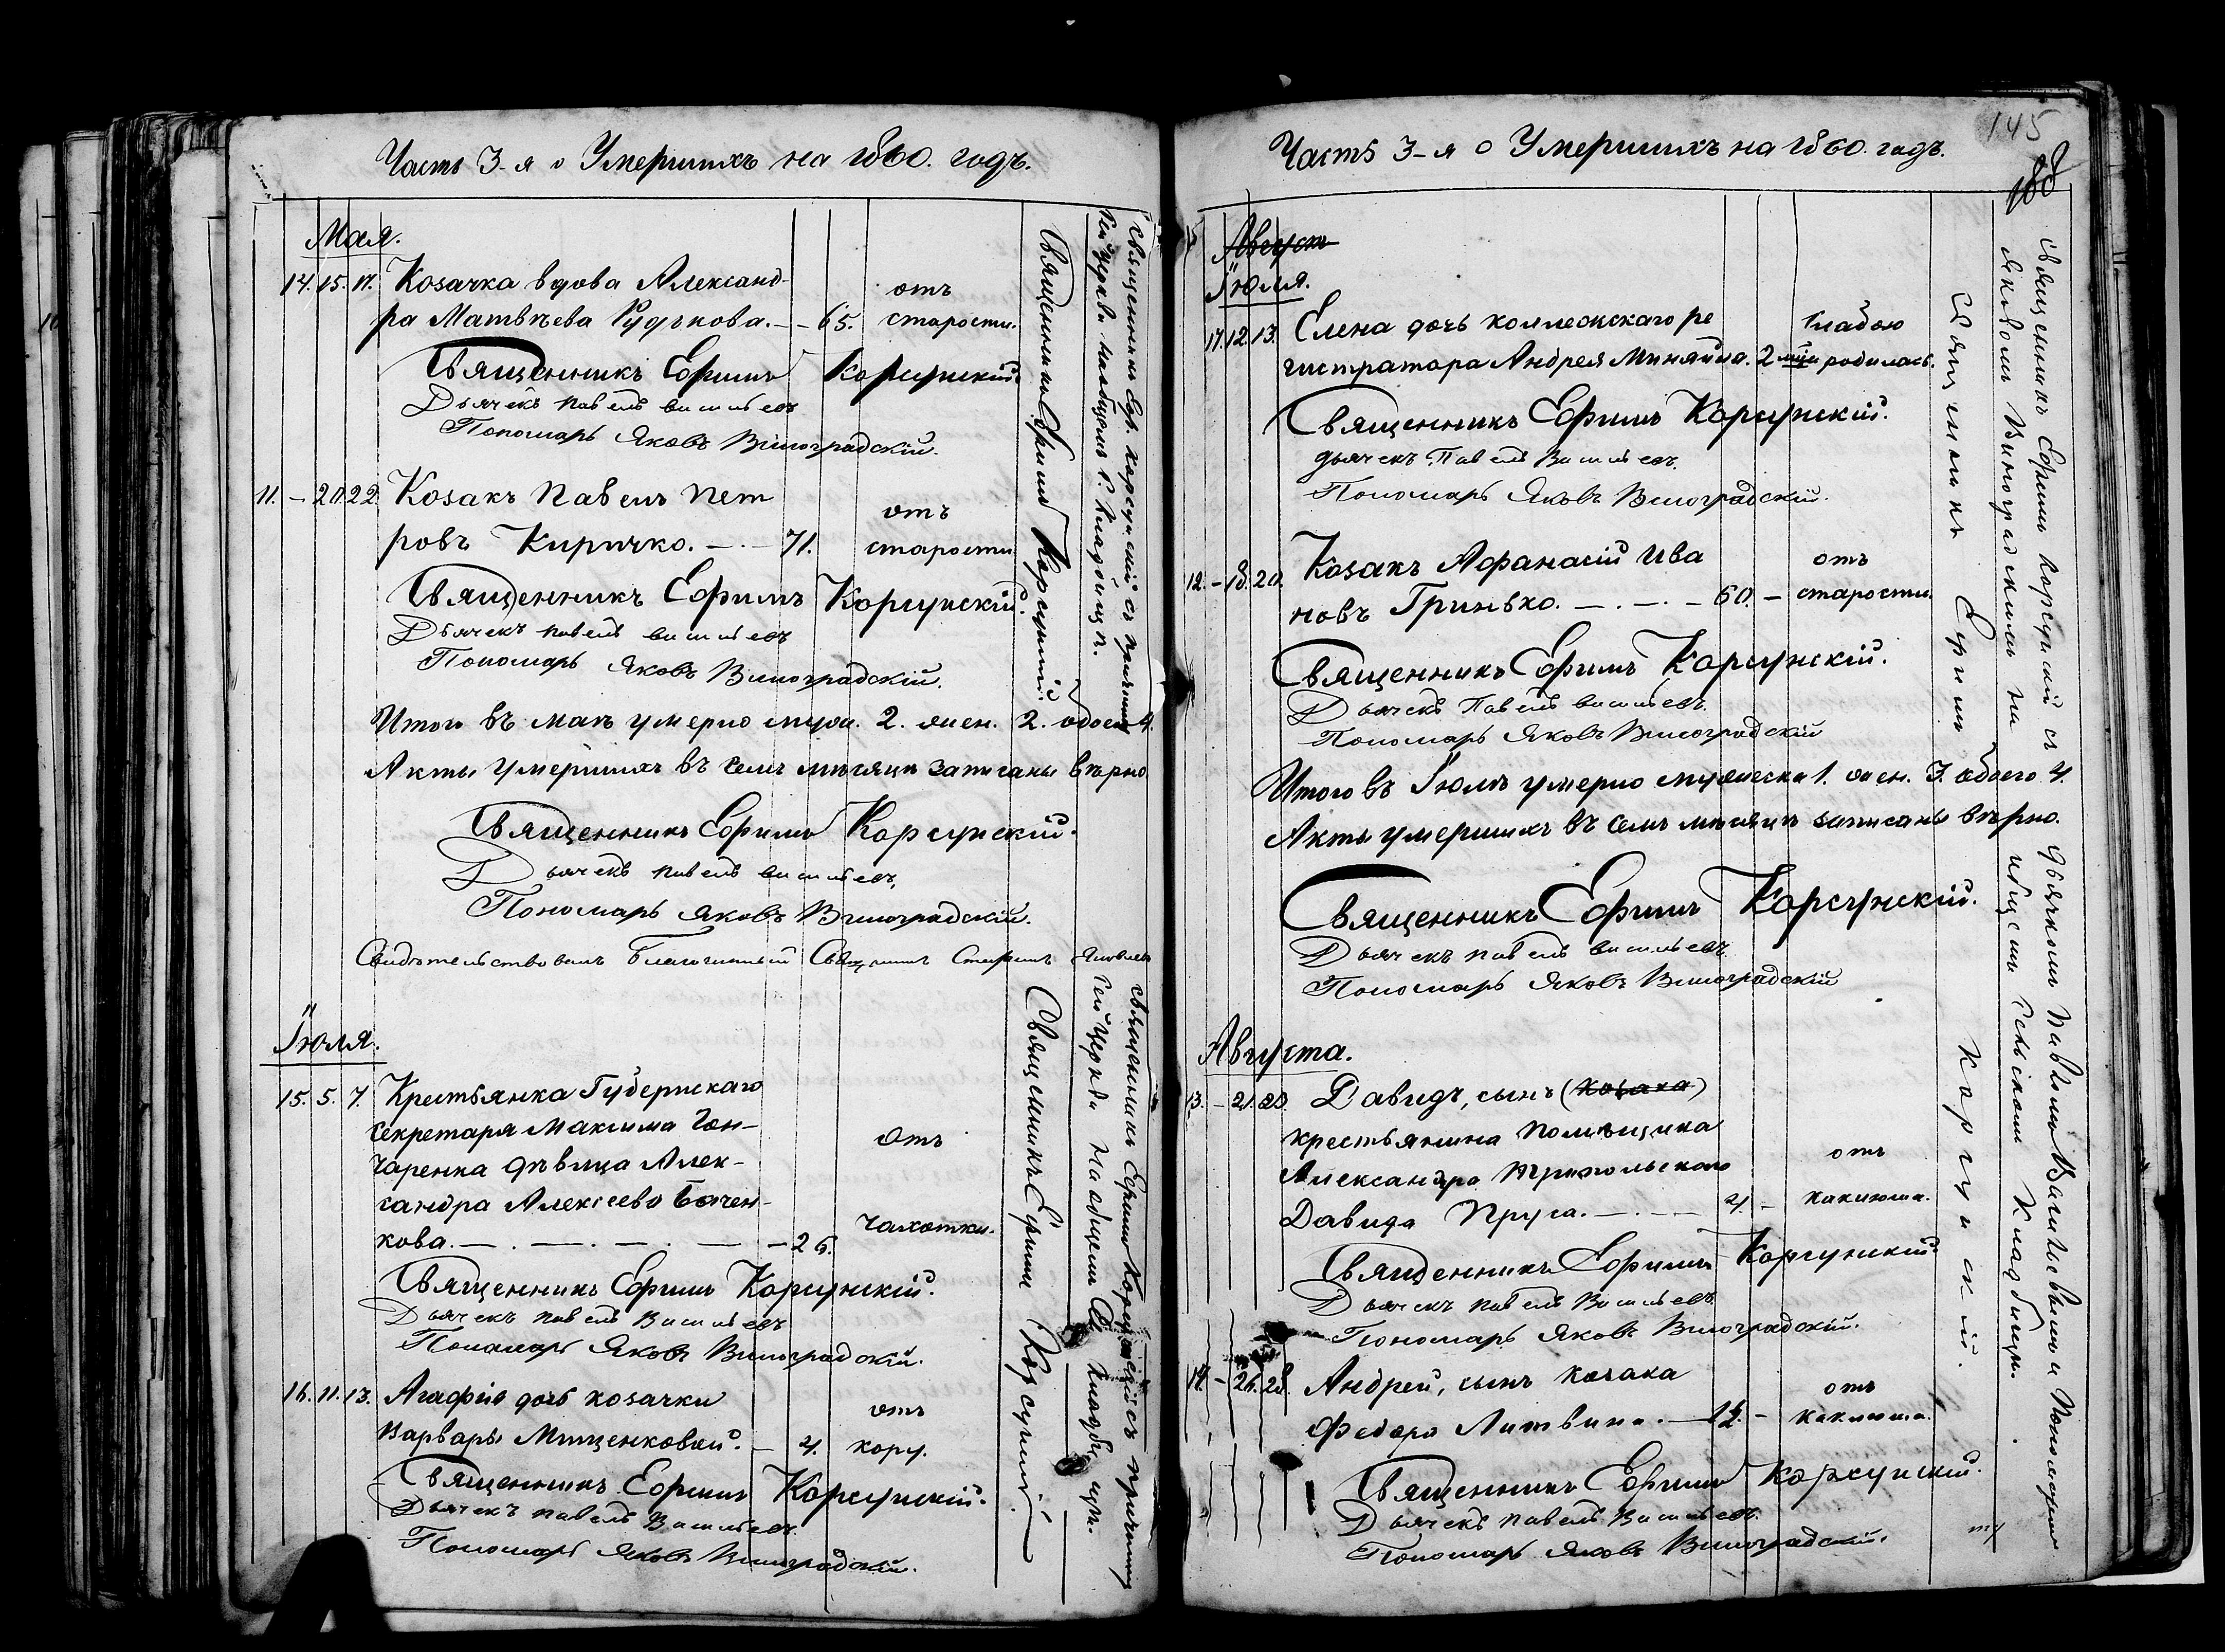 Часть 3-я о Умершихъ на 1860. годъ.
Мая.
14. 15. 17. Козачка вдова Александ-
ра Матвѣева Рудчкова. - - 65. отъ старости.
Священникъ Ефимъ Корсунскій.
Дьячекъ Павелъ Васильевъ
Пономарь Яковъ Виноградскій.
11. - 20. 22. Козакъ Павелъ Пет
ровъ Киричко. - . - 71. отъ старости
Священникъ Ефимъ Корсунскій.
Дьячекъ Павелъ Васильевъ
Пономарь Яковъ Виноградскій.
Итого въ маѣ умерло муж. 2. жен. 2. обоего 4.
Акты умершихъ въ семъ мѣсяцѣ записаны вѣрно
Священникъ Ефимъ Корсунскій.
Дьячекъ Павелъ Васильевъ,
Пономарь Яковъ Виноградскій.
Свидѣтельствовалъ Благочинный Священникъ
Священникъ Ефимъ Корсунскій
Священникъ Еф. Корсунскій съ причтомъ
сей церкви на общемъ кладбищѣ.
Іюля.
15. 5. 7. Крестьянка Губернскаго
секретаря Максима Гон-
чаренка дѣвица Алек-
сандра Алексеева
кова. - . - . - . - - 26. отъ чахотки.
Священникъ Ефимъ Корсунскій.
Дьячекъ Павелъ Васильевъ
Пономарь Яковъ Виноградскій.
16. 11. 13. Агафія дочь козачки
Варвары Мищенковой. - 4. отъ кору.
Священникъ Ефимъ Корсунскій.
Дьячекъ Павелъ Васильевъ
Пономарь Яковъ Виноградскій.
Священникъ Ефимъ Корсунскій.
Священникъ Ефимъ Корсунскій съ причтомъ
сей церкви на общемъ кладбищѣ.
145
188
Часть 3-я о Умершихъ на 1860. годъ.
Августъ
Іюля.
17. 12. 13. Елена дочь коллежскаго ре
гистратора Андрея Миняйла. 2 мця слабою родилась.
Священникъ Ефимъ Корсунскій.
дьячекъ Павелъ Васильевъ.
Пономарь Яковъ Виноградскій.
12. - 18. 20. Козакъ Афанасій Ива
новъ Гринько. - . - . - 60. - отъ старости.
Священникъ Ефимъ Корсунскій.
Дьячекъ Павелъ Васильевъ.
Пономарь Яковъ Виноградскій
Итого въ Іюлѣ умерло мужеска 1. жен. 3. обоего 4.
Акты умершихъ въ семъ мѣсяцѣ записаны вѣрно.
Священникъ Ефимъ Корсунскій.
Дьячекъ Павелъ Васильевъ
Пономарь Яковъ Виноградскій
Августа.
13. - 21. 23. Давидъ, сынъ (козака)
крестьянина помѣщика
Александра Трипольскаго
Давида Пруса. - . - . - 4. - отъ коклюша.
Священникъ Ефимъ Корсунскій.
Дьячекъ Павелъ Васильевъ
Пономарь Яковъ Виноградскій.
14. - 26. 28. Андрей, сынъ козака
Федора Литвина. - - отъ коклюша.
Священникъ Ефимъ Корсунскій.
Дьячекъ Павелъ Васильевъ.
Пономарь Яковъ Виноградскій.
Священникъ Ефимъ Корсунскій.
Священникъ Ефимъ Корсунскій съ дьячкомъ Павломъ Васильевымъ и Пономаремъ
Яковомъ Виноградскимъ на общемъ сельскомъ кладбищѣ.